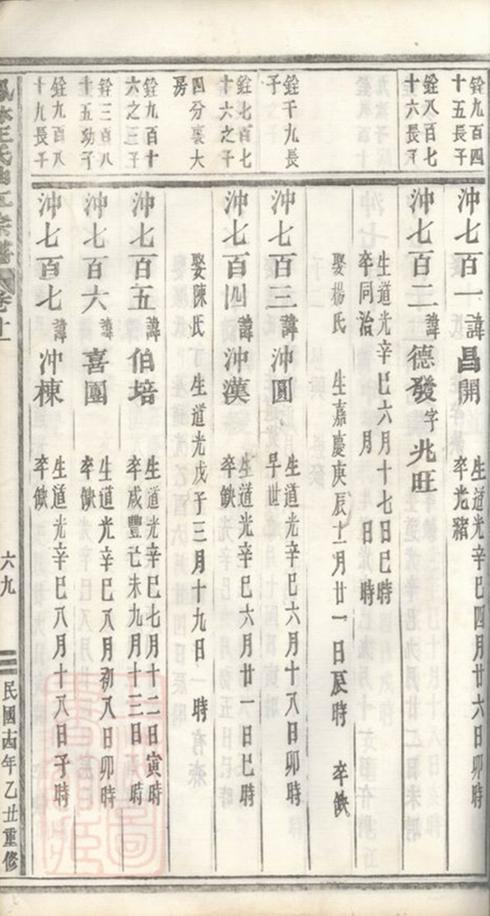 銓九百四
十五長子
沖七百一 諱昌開
生道光辛巳六月十六日卯時
卒光緒
銓八百七
十六長子
沖七百二 諱德發 字兆旺
生道光辛巳六月十七日巳時
卒同治 月 日 時
娶楊氏 生嘉慶庚辰十一月廿一日辰時 卒缺
銓千九長
子
沖七百三 諱沖圓
生道光辛巳六月十八日卯時
早世
銓七百七
十六之子
沖七百四 諱沖漢
生道光辛巳六月廿一日巳時
卒缺
四分裏大
房
娶陳氏 生道光戊子三月十九日 時
銓九百十
六之三子
沖七百五 諱伯培
生道光辛巳七月十二日寅時
卒咸豐己未九月十三日 時
銓三百八
十五幼子
沖七百六 諱喜團
生道光辛巳八月初八日卯時
卒缺
銓九百八
十九長子
沖七百七 諱沖棟
生道光辛巳八月十八日子時
卒缺
卷十一
六九
民國十四年乙丑重修